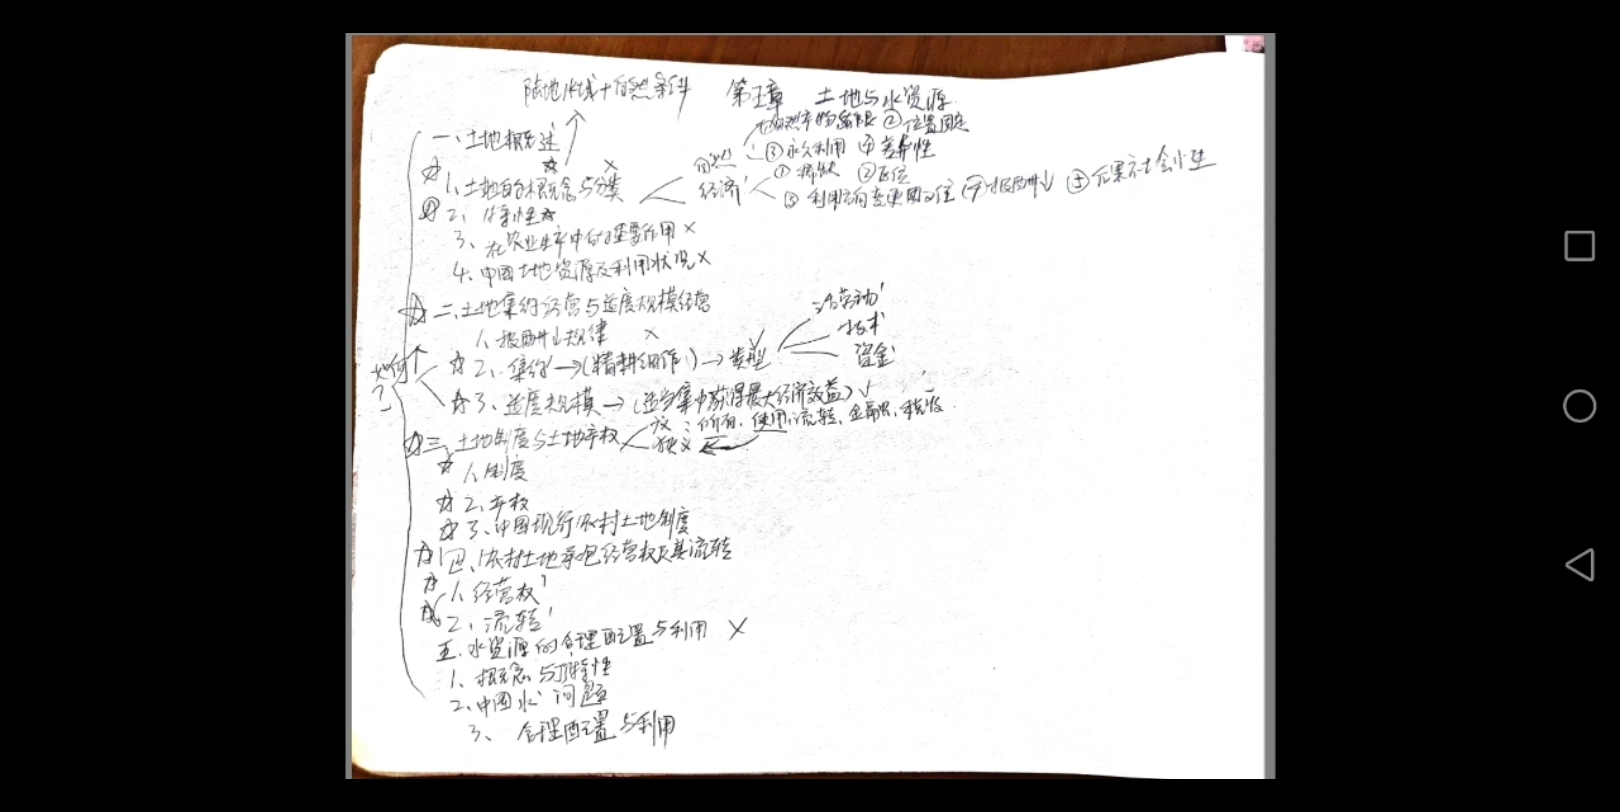 陆地水域+自然条件 第五章 土地与水资源
一、土地概述
①自然产物有限 ②位置固定
自然 ③永久利用 ④差异性
☆1、土地的概念与分类
经济 ①稀缺 ②区位
③利用方向变更困难 ④报酬↓ ⑤后果社会性
2、特性☆
3、在农业生产中的重要作用 ×
4、中国土地资源及利用状况 ×
☆二、土地集约经营与适度规模经营
1、报酬↓规律 ×
如何?
☆2、集约→(精耕细作)→类型
活劳动
技术
资金
☆3、适度规模→(适当集中获得最大经济效益)
☆三、土地制度与土地产权
广义:所有、使用、流转、金融、税收
狭义
☆1、制度
☆2、产权
☆3、中国现行农村土地制度
☆四、农村土地承包经营权及其流转
☆1、经营权
☆2、流转
五、水资源的合理配置与利用 ×
1、概念与特性
2、中国水问题
3、合理配置与利用